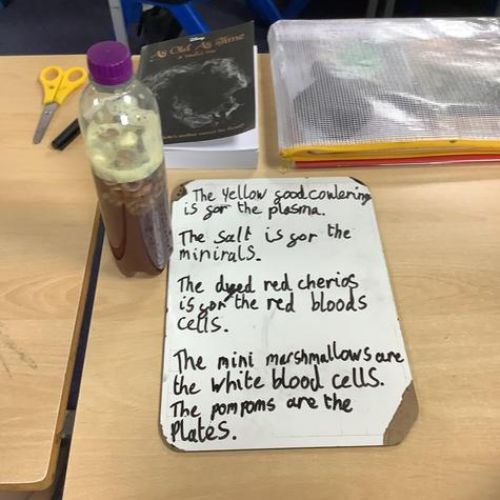 Disney
As Old As Time
A Twisted Tale
The yellow goodcowlering
is gor the plasma.
The salt is gor the
minirals.
The dyed red cherios
is gor the red bloods
cells.
The mini marshmallows are
the white blood cells.
The pompoms are the
Plates.